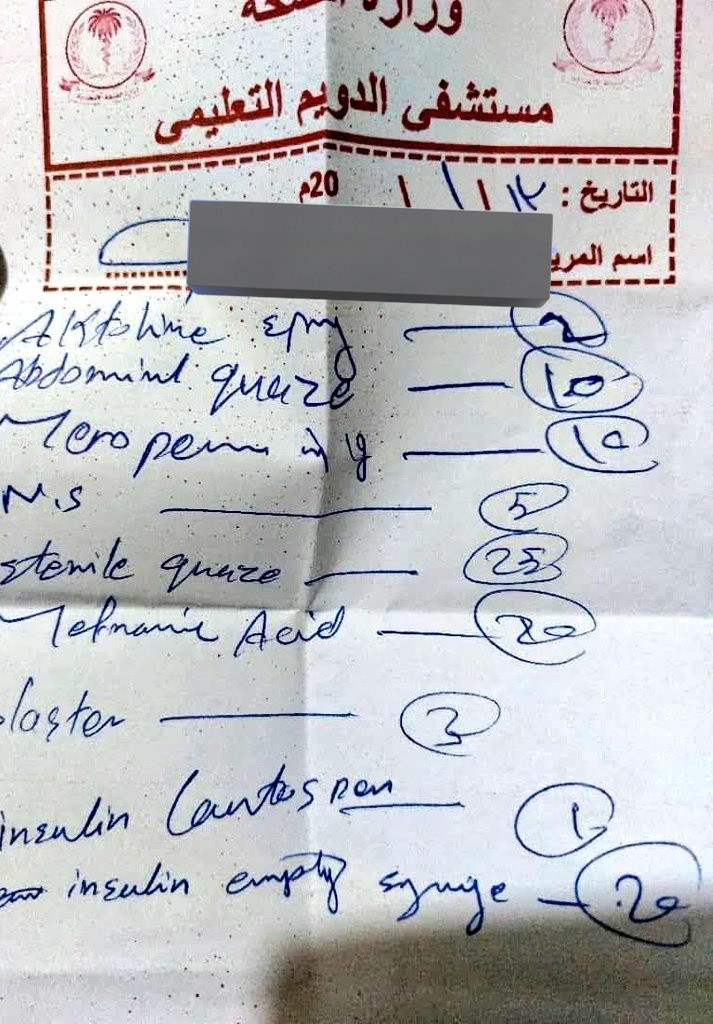 وزارة الصحة
مستشفى الدويم التعليمى
التاريخ : ١٢ / ١ / 20م
اسم المري
Abdominal quaze 10
Meropenem inj 1g 10
N.S 5
sterile quaze 25
Mefnamic Acid 20
plaster 3
insulin Lantos pen 1
insulin empty syringe 20